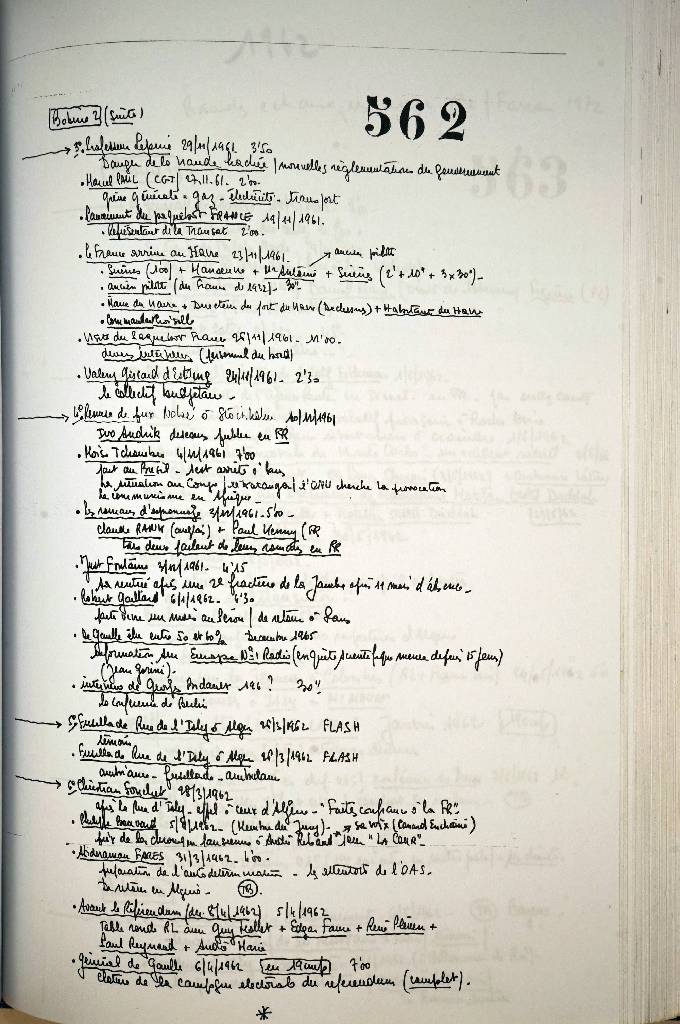 562
Bobine 2 (Suite)
3° Professeur Lépine 29/11/1961 3'50
Danger de la viande hachée / nouvelles règlementations du gouvernement
. Marcel PAUL (CGT) 27.11.61. 2'00
grève générale = gaz - électricité - transport
. Lancement du paquebot FRANCE 19/11/1961.
. Représentant de la Transat 2'00.
. le France arrive au Havre 23/11/1961. → ancien pilote
. Sirènes (1'00) + + Mr Antoine + Sirènes (2' + 10" + 3 x 30") -
. ancien pilote (du France de 1932) - 30"
. Maire du Havre + Directeur du port du Havre + Habitant du Havre
. Commandant
. Visite du Paquebot France 25/11/1961 - 11'00.
divers interviews (personnel du bord)
. Valery Giscard d'Estaing 24/11/1961 - 2'30
le collectif budgétaire -
4° Remise de prix Nobel à Stockholm 10/12/1961
Ivo Andrik discours publié en FR
. Moïse Tchombé 4/12/1961 7'00
part au Brésil - s'est arrêté à Paris
La situation au Congo / le Katanga / l'ONU cherche la provocation
le communisme en Afrique -
. Les romans d'espionnage 3/12/1961 - 5'00 -
Claude RANK (anglais) + Paul Kenny (FR
tous deux parlent de leurs romans en FR
. Just Fontaine 3/12/1961 - 4'15
sa rentrée après une 2e fracture de la Jambe après 11 mois d'absence -
. Robert Gaillard 6/1/1962 - 4'30
parti vivre un mois au / de retour à Paris
. De Gaulle élu entre 50 et 60% Decembre 1965
Information sur Europe N°1 Radio (enquête scientifique menée depuis 15 jours)
(Jean Gorini).
. interview de Georges Bidault 196 ? 30"
la conférence de Berlin
5° Fusillade Rue de l'Isly à Alger 26/3/1962 FLASH
témoin
. Fusillade Rue de l'Isly à Alger 26/3/1962 FLASH
ambiance - fusillade - ambulance
6° Christian Fouchet 28/3/1962
après la Rue d'Isly - appel à ceux d'Alger - "Faites confiance à la FR" -
. Philippe Bouvard 5/4/1962 - (Membre du Jury) - → sa voix (Canard Enchainé)
prix de la chronique parisienne à André Ribaud pour "LA COUR" -
. Abderaman FARES 31/3/1962 - 4'00 -
préparation de l'autodetermination - les attentats de l'OAS -
Le retour en Algérie - (TB).
. Avant le Référendum (du 8/4/1962) 5/4/1962
Table ronde RL avec Guy Mollet + Edgar Faure + René Pleven +
Paul Reynaud + André Marie
. général de Gaulle 6/4/1962 7'00
cloture de la campagne electorale du referendum (complet).
*